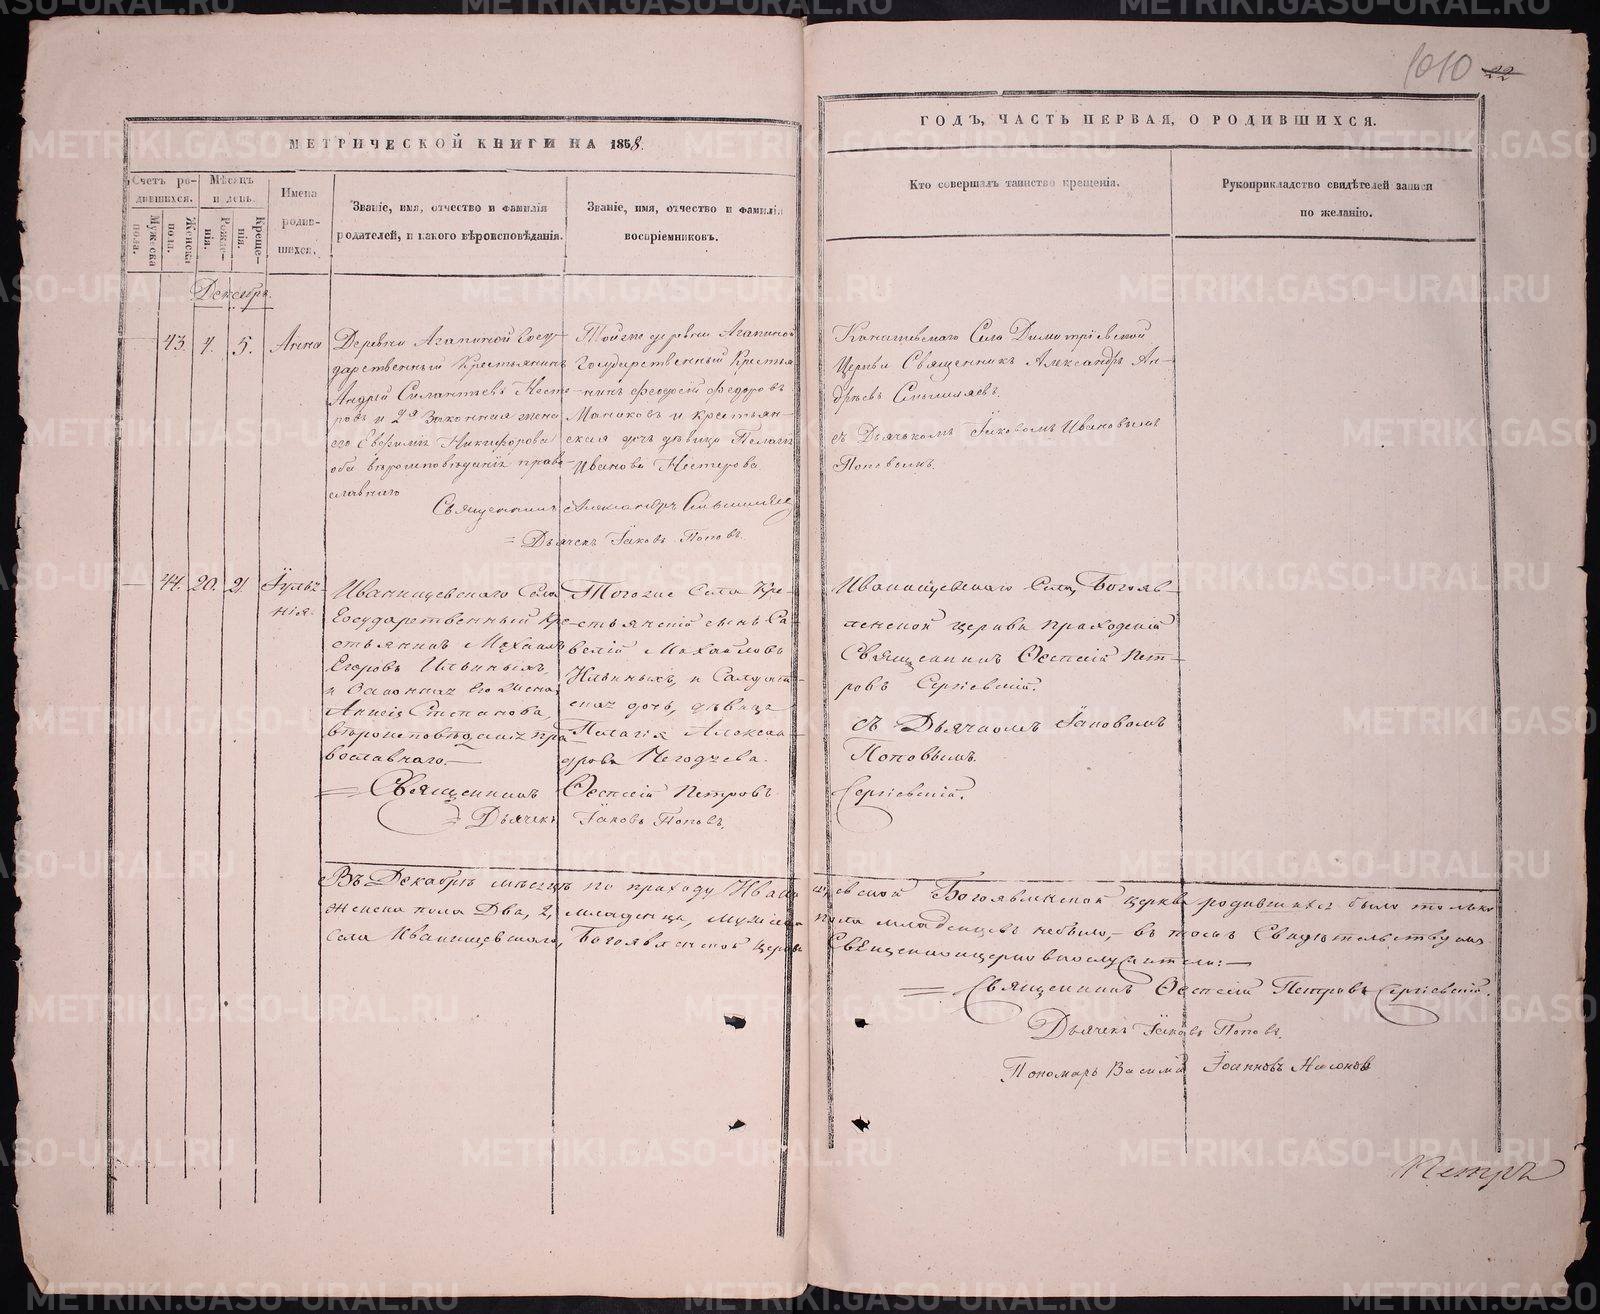 1010 22
МЕТРИЧЕСКОЙ КНИГИ НА 1858.
ГОДЪ, ЧАСТЬ ПЕРВАЯ, О РОДИВШИХСЯ.
Счетъ родившихся.
Мужеска пола.
Женска пола.
Мѣсяцъ и день.
Рожденія.
Крещенія.
Имена родившихся.
Званіе, имя, отчество и фамилія
родителей, и какого вѣроисповѣданія.
Званіе, имя, отчество и фамилія
воспріемниковъ.
Кто совершалъ таинство крещенія.
Рукоприкладство свидѣтелей записи
по желанію.
Декабрь.
43. 4. 5. Анна
Деревни Агапиной Госу-
дарственный Крестьянинъ
Андрей Силантьевъ Несте-
ровъ и 2я Законная жена
его Евфимія Никифорова
оба вѣроисповѣданія право-
славнаго
Тойже деревни Агапиной
Государственный Крестья-
нинъ Федоровъ
и крестьян-
ская дочь дѣвица Пелагія
Иванова Нестерова.
Священникъ Александръ
= Дьячекъ Іаковъ Поповъ.
Села Димитріевской
Церкви Священникъ Александръ Ан-
дреевъ
съ Дьячкомъ Іаковомъ Ивановымъ
Поповымъ.
44. 20. 21. Іулі-
нія.
Иванищевскаго Села
Государственный Кре-
стьянинъ Михаилъ
Егоровъ Ильиныхъ,
и Законная его жена
Анисія Степанова,
вѣроисповѣданія пра-
вославнаго.—
Тогоже Села Кре-
стьянскій сынъ Са-
велій Михайловъ
Ильиныхъ, и Солдат-
ская дочь, дѣвица
Палагія Алексан-
дрова Негодяева.
= Священникъ Ѳеоктистъ Петровъ
= Дьячекъ Іаковъ Поповъ.
Иванищевскаго Села, Богояв-
ленской церкви приходскій
Священникъ Пет-
ровъ Сергіевскій.
съ Дьячкомъ Іаковомъ
Поповымъ.
Сергіевскій.
Въ Декабрѣ мѣсяцѣ по приходу Иванищевской Богоявленской церкви родившихся было только
женска пола два, 2, младенца, мужеска пола младенцевъ небыло,— въ томъ Свидѣтельствуемъ
села Иванищевскаго, Богоявленской церкви Священноцерковнослужители:—
= Священникъ Петровъ Сергіевскій.
Дьячекъ Іаковъ Поповъ.
Пономарь Василій Іоанновъ
Петръ
METRIKI.GASO-URAL.RU